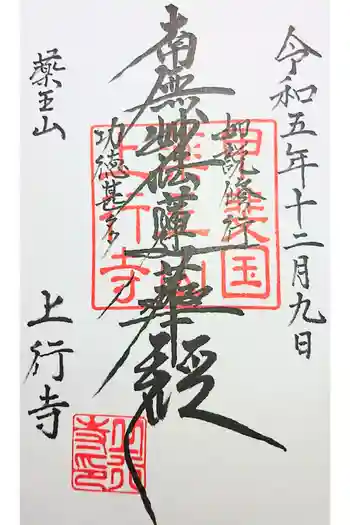 令和五年十二月九日
如説修行
南無妙法蓮華経
功徳甚多
薬王山
上行寺